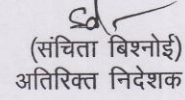 Sd/-
(संचिता बिश्नोई)
अतिरिक्त निदेशक